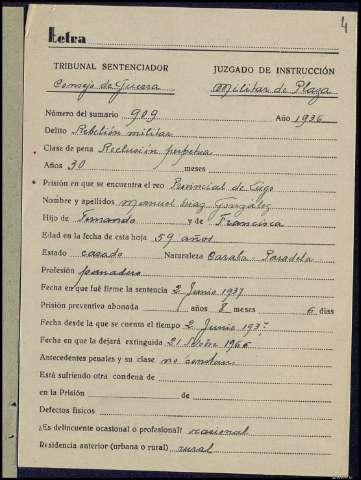 4
Letra
TRIBUNAL SENTENCIADOR JUZGADO DE INSTRUCCIÓN
Consejo de Guerra Militar de Plaza
Número del sumario 909 Año 1936
Delito Rebelión militar
Clase de pena Reclusión perpetua
Años 30 meses
Prisión en que se encuentra el reo Provincial de Lugo
Nombre y apellidos Manuel Diaz González
Hijo de Fernando y de Francisca
Edad en la fecha de esta hoja 59 años
Estado casado Naturaleza Paradela
Profesión panadero
Fecha en que fué firme la sentencia 2 Junio 1937
Prisión preventiva abonada años 8 meses 6 dias
Fecha desde la que se cuenta el tiempo 2 Junio 193
Fecha en que la dejará extinguida 21 1966
Antecedentes penales y su clase no constan
Está sufriendo otra condena de
en la Prisión de
Defectos físicos
¿Es delincuente ocasional o profesional? ocasional
Residencia anterior (urbana o rural) rural